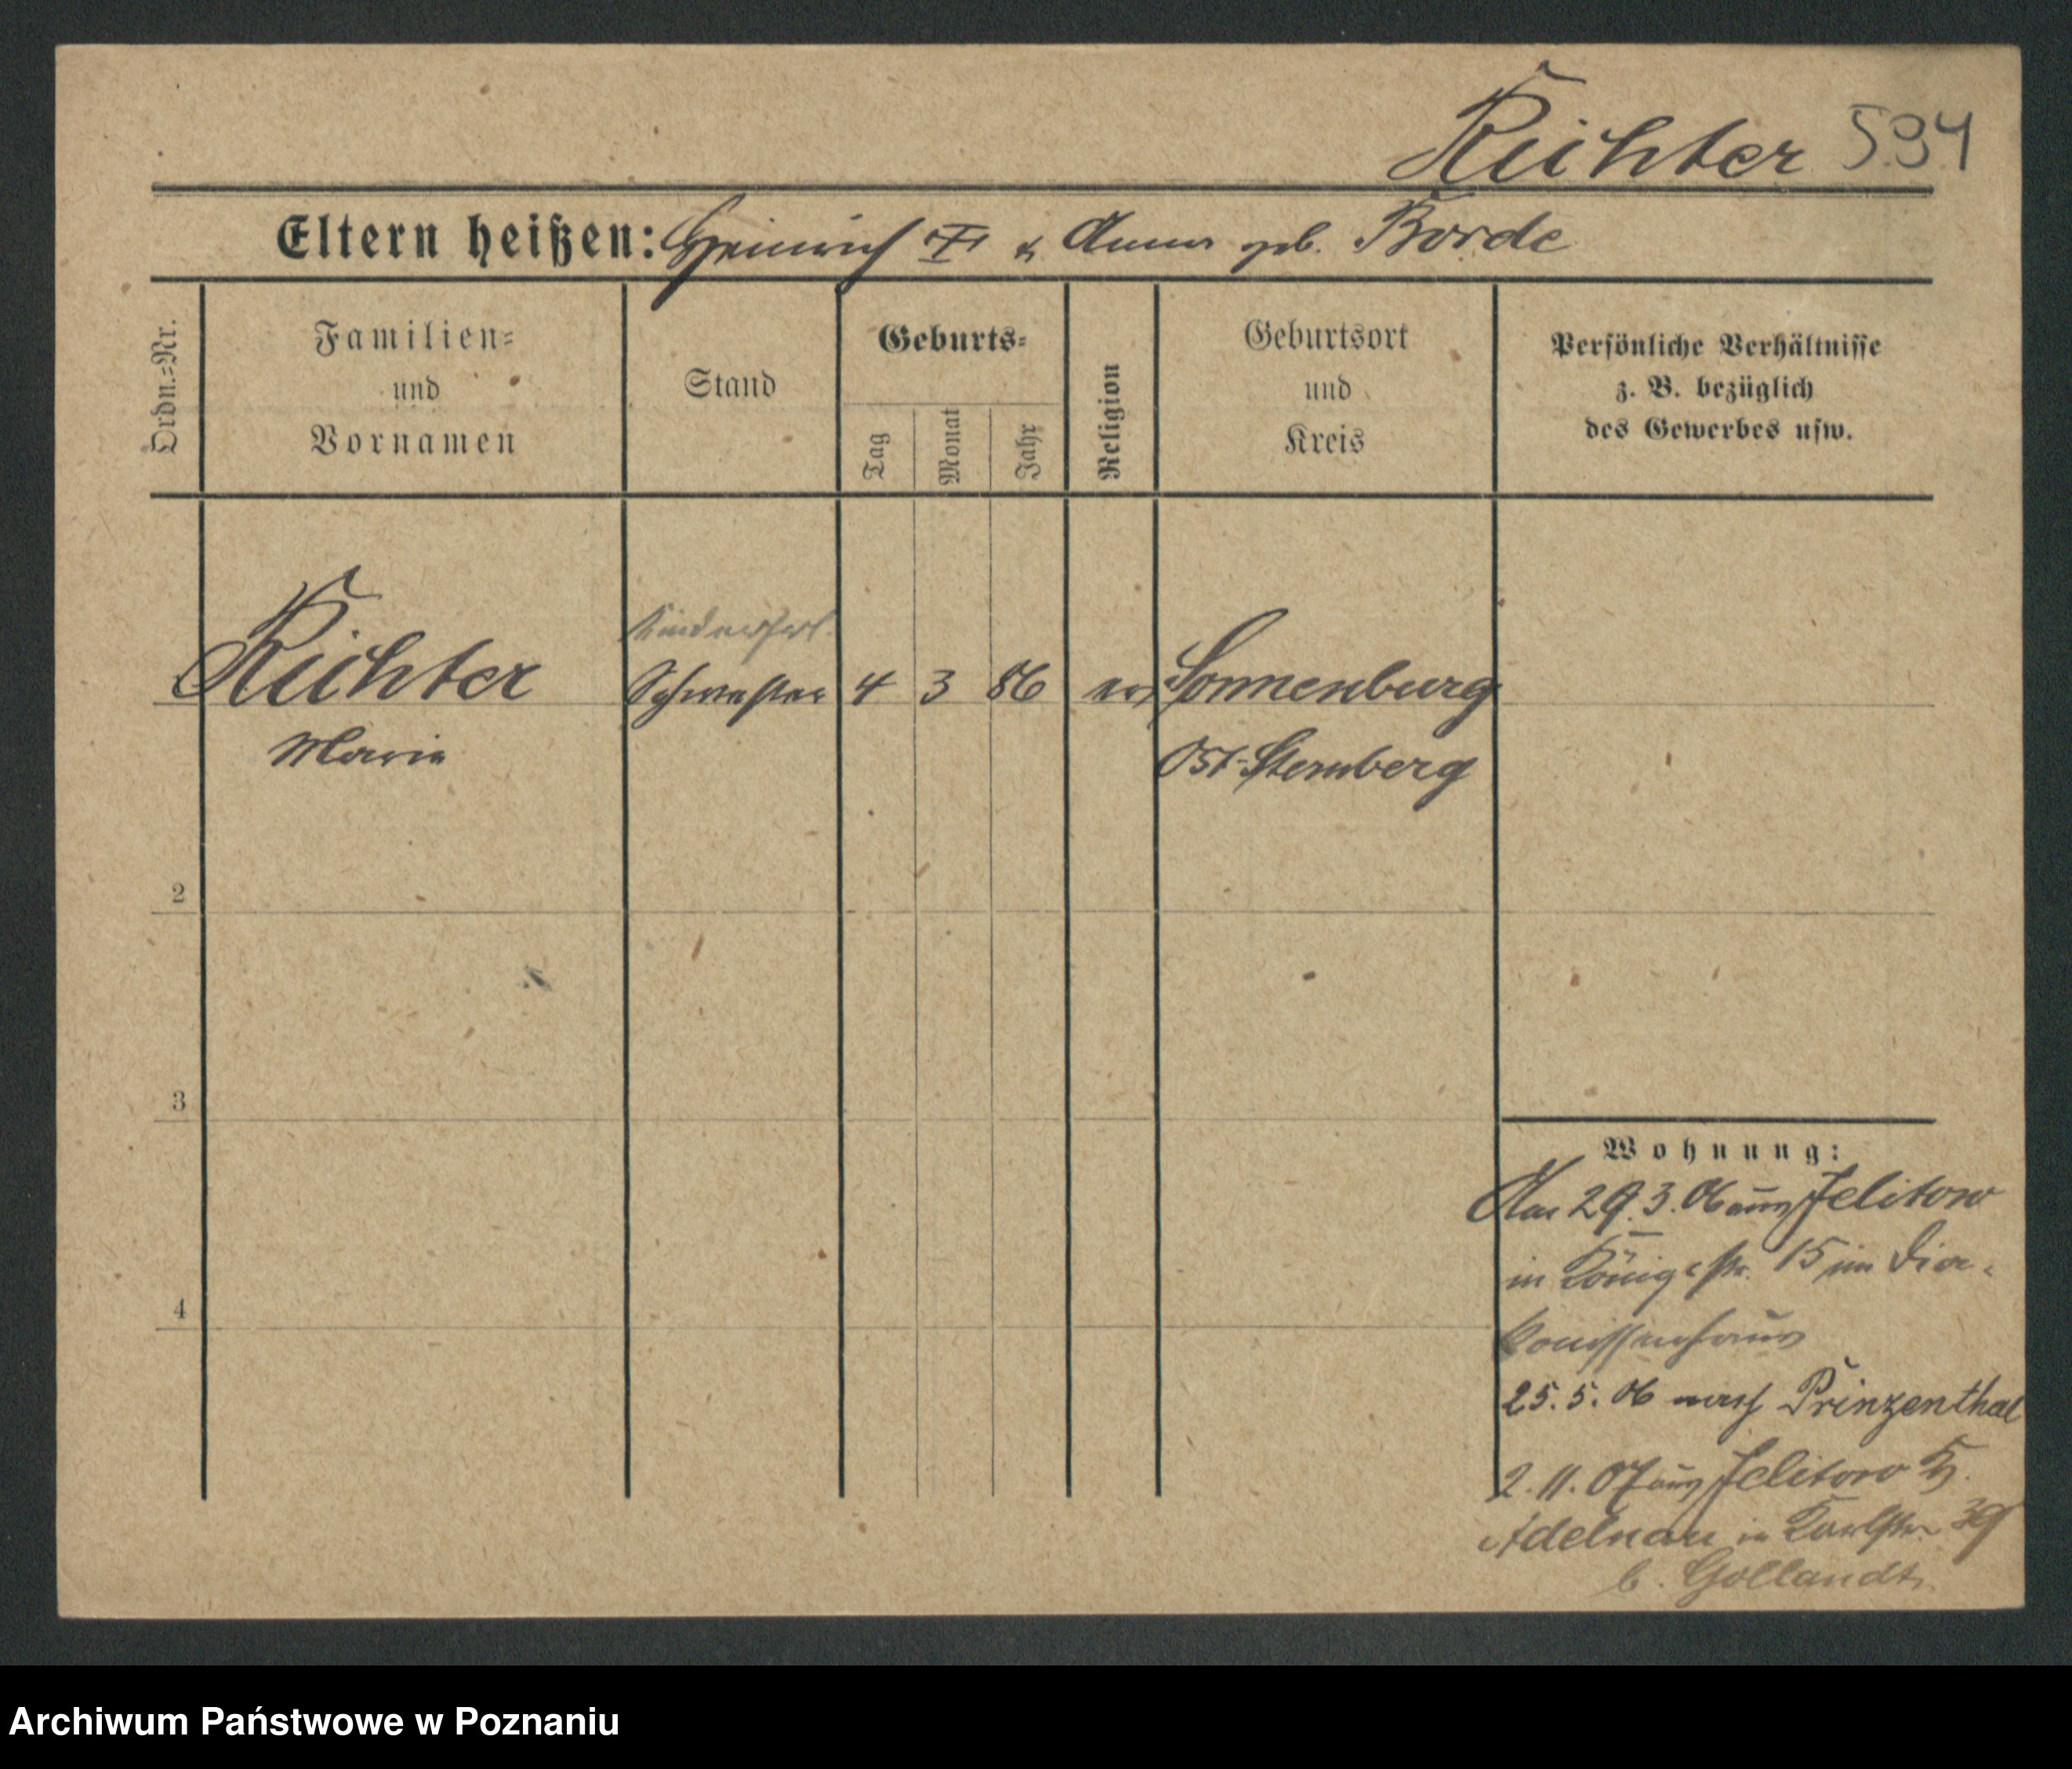 Richter 594
Eltern heißen: Heinrich † & Anna geb. Borde
Ordn.-Nr.
Familien-
und
Vornamen
Stand
Geburts-
Tag
Monat
Jahr
Religion
Geburtsort
und
Kreis
Persönliche Verhältnisse
z. B. bezüglich
des Gewerbes usw.
Kinderfrl.
Richter Schwester 4 3 86 ev. Sonnenburg
Marie Ost-Sternberg
2
3
4
Wohnung:
29.3.06 aus Jelitow
in Königstr. 15 im Dia-
konissenhaus
25.5.06 nach Prinzenthal
2.11.07 aus Jelitow K.
Adelnau in Karlstr. 39
b. Gollandt
Archiwum Państwowe w Poznaniu